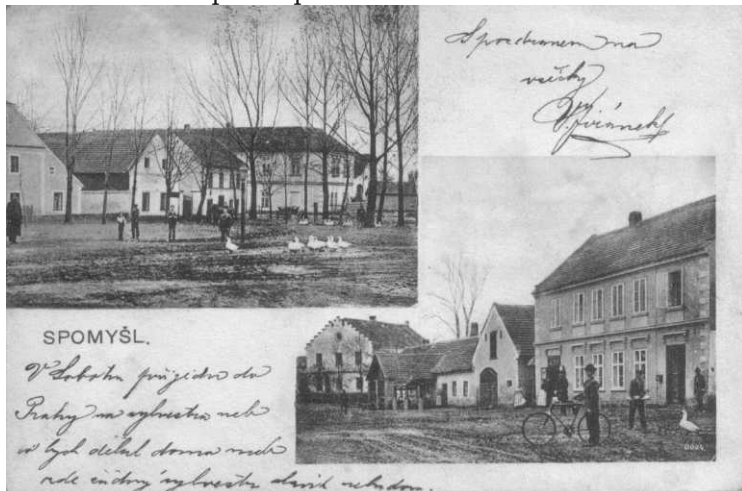 S pozdravem na
všecky
SPOMYŠL.
V Sobotu přijedu do
Prahy na sylvestra neb
co bych dělal doma neb
zde žádný sylvestr slavit nebudou.